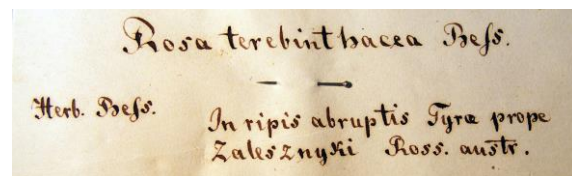 Rosa terebinthacea Beſs.
Herb. Beſs.
In ripis abruptis Tyræ prope
Zalesznyki Ross. austr.